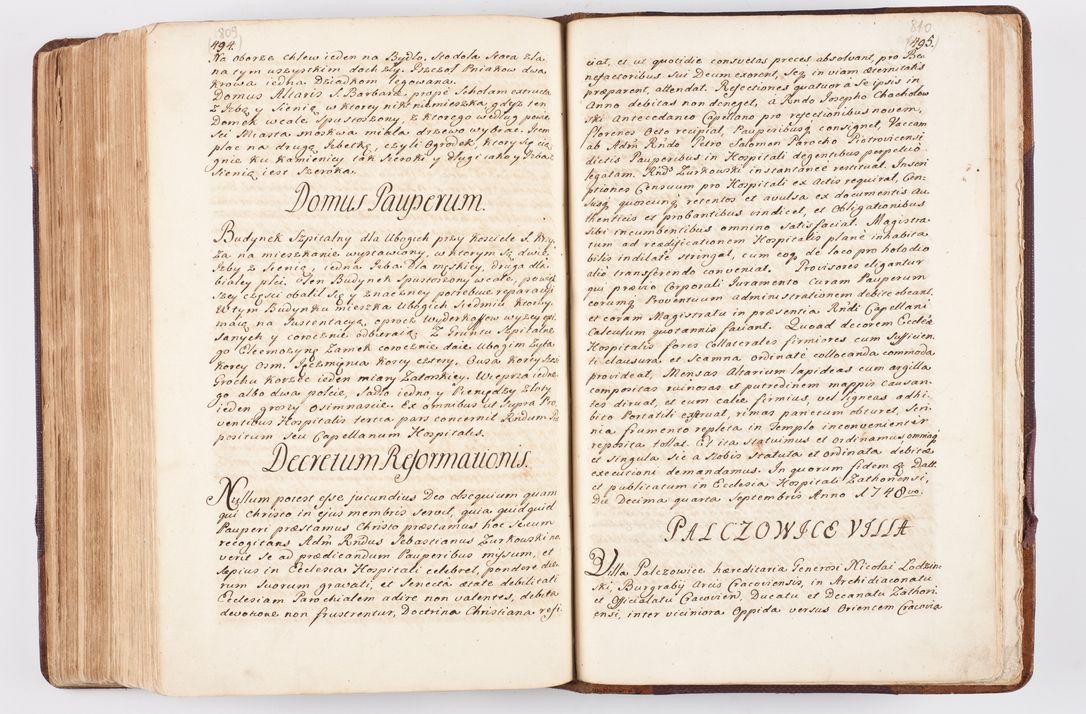 809
494.
Na oborze chlew ieden na Bydło, Stodola Stara zla,
na tym wszystkim dach zły. Pszczoł Pniakow dwa
krowa iedna Dziadkom legowana.
Domus Altaris S. Barbaræ propè Scholam extructa
z Izbą y Sienią, w ktorey nikt niemieszka, gdyż ten
Domek wcale Spustoszony, z ktorego według powie
ści Miasta Moskwa miała drzewo wybrać. Item
plac na drugą Izbetkę, czyli Ogrodek, ktory się cią
gnie ku kamienicy tak Szeroki y Długi iako y Izba z
Sienią iest Szeroka.
Domus Pauperum.
Budynek Szpitalny dla Ubogich przy kościele S. Krzy
ża na mieszkanie wystawiony, w ktorym są dwie
Izby z Sienią, iedna Izba Dla męskiey, Druga dla
białey płci. Ten Budynek Spustoszony wcale, powięk
szey części obalił Się y znaczney potrzebuie reparacyi
W tym Budynku mieszka Ubogich Siedmiu ktorzy
maią na Sustentacyą, oprocz wyderkaffow wyzey opi
sanych y corocznie odbieraią. Z Gruntu Szpitalne
go Eleemozynę Zamek corocznie daie Ubogim Zyta
korcy Osm. Jęczmienia korcy cztery. Owsa korcy
Grochu korzec ieden miary Zatorskiey. Wieprza iedne
go albo dwa połcie, Sadło iedno y Pieniędzy złoty
ieden groszy osimnascie. Ex omnibus ut supra Pro
ventibus Hospitalis tertia pars concernit Rndum Præ
positum seu Capellanum Hospitalis.
Decretum Reformationis.
Nullum potest esse jucundius Deo obsequium quam
qui Christo in ejus membris servit, quia quidquid
Pauperi præstamus Christo præstamus hoc Secum
recogitans Adm Rndus Sebastianus Zurkowski no
verit Se ad prædicandum Pauperibus missum, et
Sæpius in Ecclesia Hospitali celebret, pondere die
rum Suorum gravati, et Senectâ ætate debilitati
Ecclesiam Parochialem adire non valentes, debita
devotione non frustrentur, Doctrina Christiana refi
810
495.
ciat, et ut quotidie consuetas preces absolvant, pro Be
nefactoribus Sui Deum exorent, Seq in viam æternitatis
præparent, attendat. Refectiones quatuor a Se ipsis in
Anno debitas non deneget, a Rndo Josepho Chachulow
ski Antecedaneo Capellano pro refectionibus novem,
florenos Octo recipiat, Pauperibusq consignet, Vaccam
ab Adm Rndo Petro Salomon Parocho Piotrovicensi
dictis Pauperibus in Hospitali degentibus perpetuò
legatam. Rnds Zurkowski instantanee restituat. Inscri
ptiones Censuum pro Hospitali ex Actis requirat, Cen
susq quoscunq retentos et avulsa ex documentis Au
thenticis et probantibus vindicet, et Obligationibus
Sibi incumbentibus omnino Satisfaciat. Magistra
tum ad reædificationem Hospitalis planè inhabita
bilis indilatè stringat, cum eoq de loco pro hoc alio
aliò transferendo conveniat. Provisores eligantur
qui prævio Corporali Juramento curam Pauperum
eorumq Proventuum administrationem debitè habeant,
et coram Magistratu in præsentia Rndi Capellani
Calculum quotannis faciant. Quoad decorem Ecclæ
Hospitalis fores Collaterales firmiores cum Sufficien
ti clausura, et Scamna ordinatè collocanda commoda
provideat, Mensas Altarium lapideas cum argilla
compositas ruinosas et putredinem mappis causan
tes diruat, et cum calce firmius, vel ligneas adhi
bito Portatili exstruat, rimas parietum obturet, Scri
nia frumento repleta in Templo inconvenienter
reposita tollat. Et ita statuimus et ordinamus, omniaq
et singula Sic à Nobis statuta et ordinata debitæ
executioni demandamus. In quorum fidem &c Datt.
et publicatum in Ecclesia Hospitali Zathoriensi,
Die Decima quarta Septembris Anno 1748vo.
PALCZOWICE VILLA
Villa Palczowice hæreditaria Generosi Nicolai Lodzin
ski, Burgrabij Arcis Cracoviensis, in Archidiaconatu
et Officialatu Cracovien, Ducatu et Decanatu Zathori
ensi, inter viciniora Oppida versus Orientem Cracovia